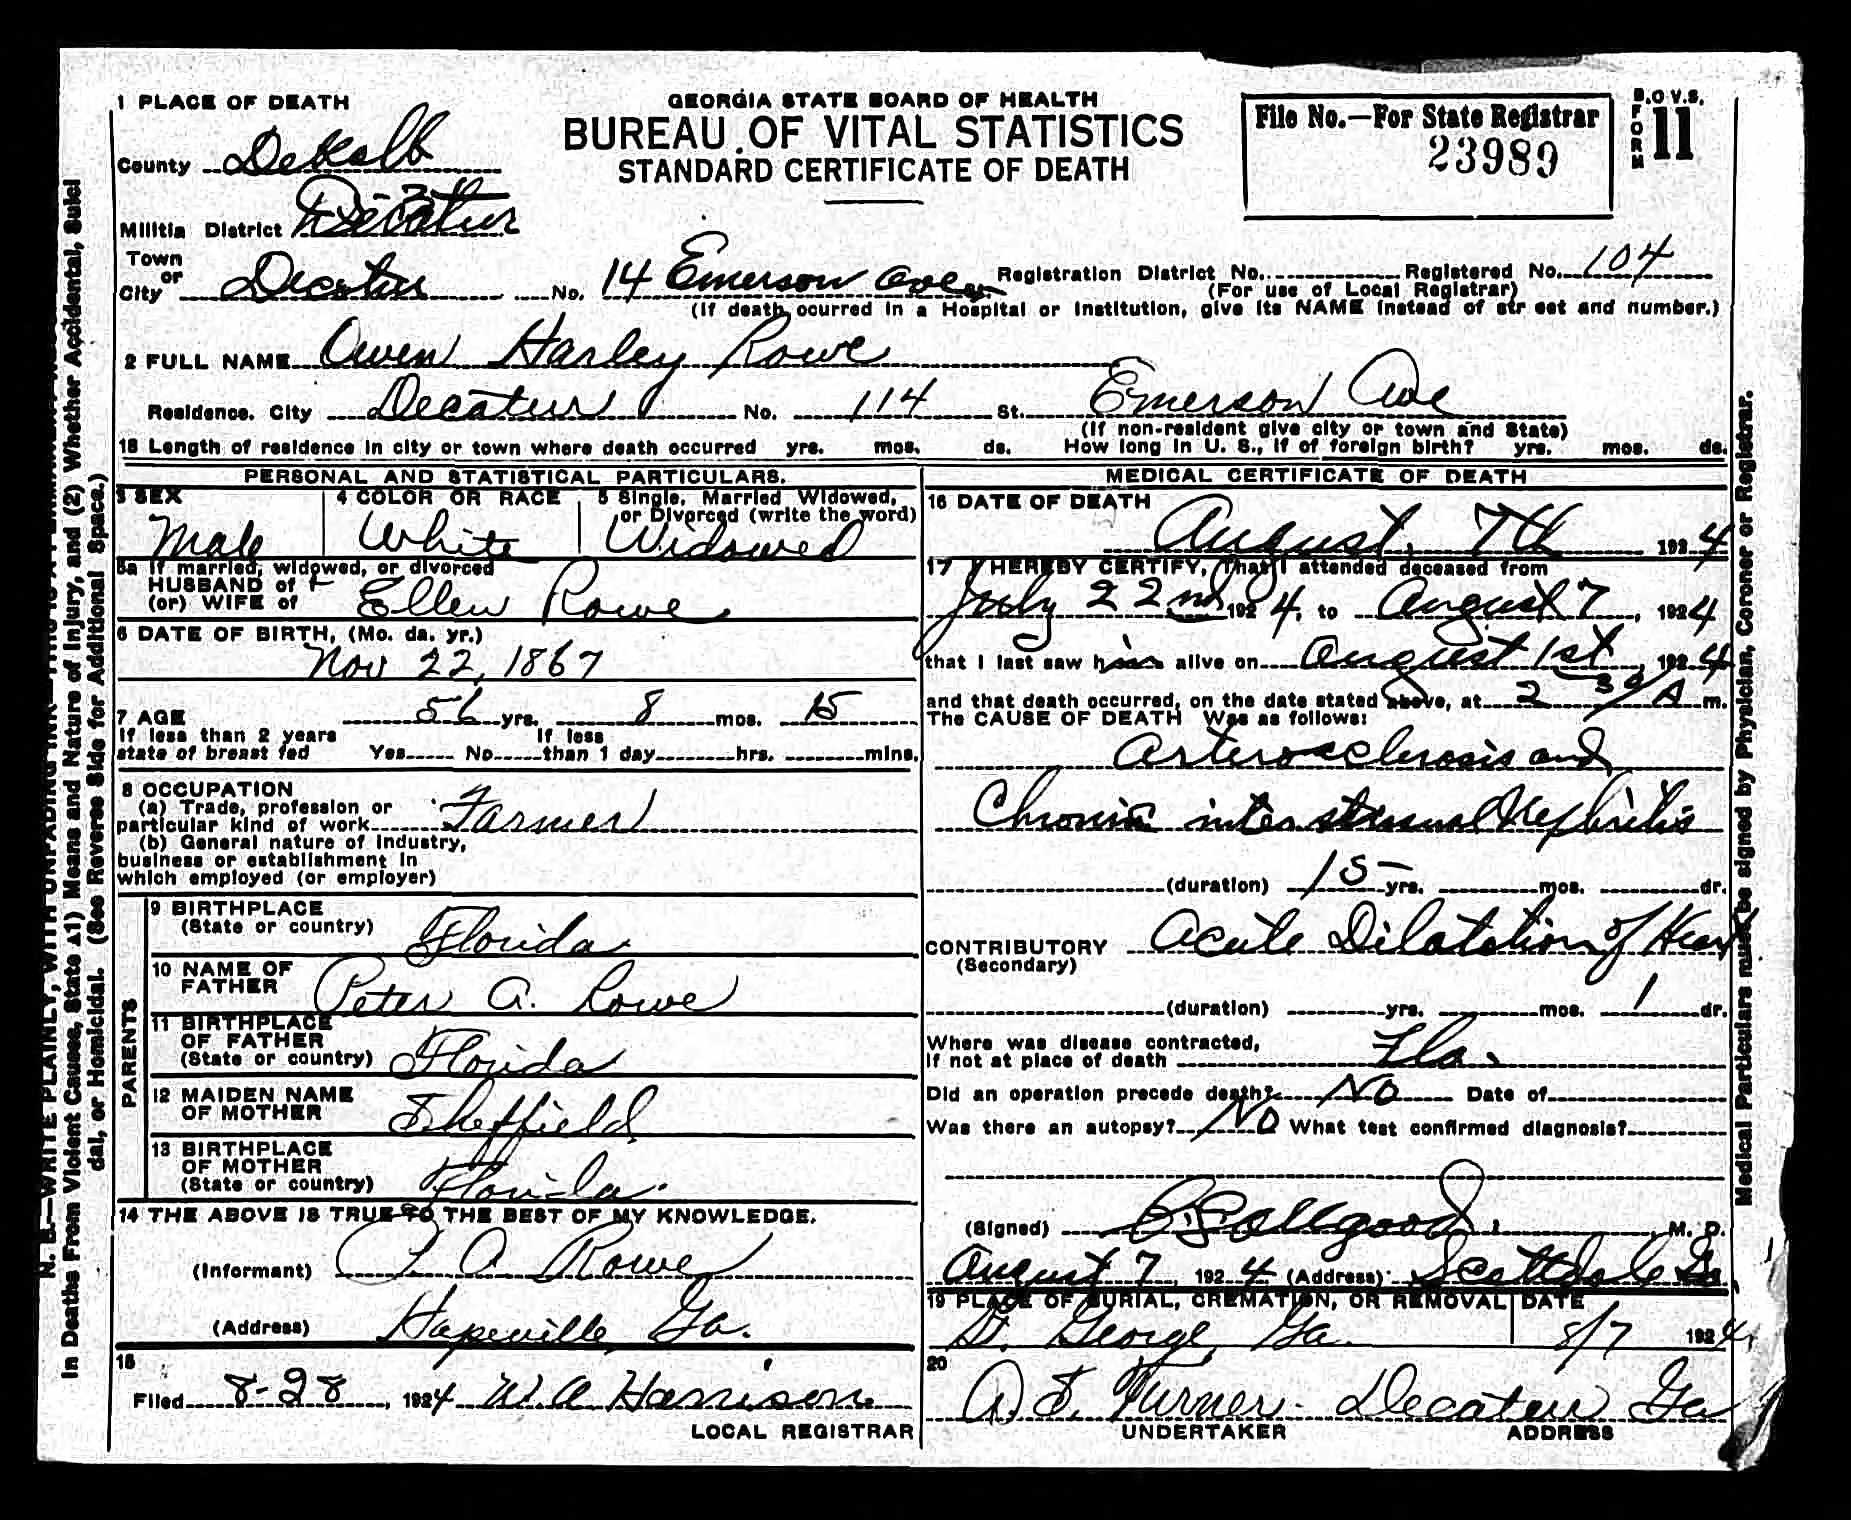 1 PLACE OF DEATH
GEORGIA STATE BOARD OF HEALTH
BUREAU OF VITAL STATISTICS
STANDARD CERTIFICATE OF DEATH
File No.—For State Registrar
23989
B.O V.S.
FORM 11
County DeKalb
Militia District Decatur
Town or City Decatur No. 14 Emerson Ave Registration District No. Registered No. 104
(For use of Local Registrar)
(If death ocurred in a Hospital or Institution, give its NAME instead of str eet and number.)
2 FULL NAME Owen Harley Rowe
Residence. City Decatur No. 114 St. Emerson Ave
(If non-resident give city or town and State)
18 Length of residence in city or town where death occurred yrs. mos. ds. How long in U. S., if of foreign birth? yrs. mos. ds.
PERSONAL AND STATISTICAL PARTICULARS.
3 SEX
Male
4 COLOR OR RACE
White
5 Single, Married Widowed,
or Divorced (write the word)
Widowed
5a If married, widowed, or divorced
HUSBAND of
(or) WIFE of Ellen Rowe
6 DATE OF BIRTH, (Mo. da. yr.)
Nov 22, 1867
7 AGE 56 yrs. 8 mos. 15
If less than 2 years If less
state of breast fed Yes No than 1 day hrs. mins.
8 OCCUPATION
(a) Trade, profession or
particular kind of work Farmer
(b) General nature of industry,
business or establishment in
which employed (or employer)
PARENTS
9 BIRTHPLACE
(State or country) Florida
10 NAME OF
FATHER Peter A. Rowe
11 BIRTHPLACE
OF FATHER
(State or country) Florida
12 MAIDEN NAME
OF MOTHER Sheffield
13 BIRTHPLACE
OF MOTHER
(State or country) Florida.
14 THE ABOVE IS TRUE TO THE BEST OF MY KNOWLEDGE.
(Informant) P. A. Rowe
(Address) Hapeville, Ga.
15
Filed 8-28, 1924 W. A Harrison
LOCAL REGISTRAR
MEDICAL CERTIFICATE OF DEATH
16 DATE OF DEATH
August, 7th 1924
17 I HEREBY CERTIFY, That I attended deceased from
July 22nd 1924, to August 7, 1924
that I last saw him alive on August 1st, 1924
and that death occurred, on the date stated above, at 2 30/A m.
The CAUSE OF DEATH Was as follows:
Arterosclerosis and
Chronic interstitial Nephritis
(duration) 15 yrs. mos. dr.
CONTRIBUTORY Acute Dilatation of Heart
(Secondary)
(duration) yrs. mos. 1 dr.
Where was disease contracted,
if not at place of death Fla.
Did an operation precede death? No Date of
Was there an autopsy? No What test confirmed diagnosis?
(Signed) M. D.
August 7, 1924 (Address) Scottdale Ga,
19 PLACE OF BURIAL, CREMATION, OR REMOVAL DATE
St. George, Ga. 8/7 1924
20
A. S. Turner. Decatur Ga
UNDERTAKER ADDRESS
In Deaths From Violent Causes, State (1) Means and Nature of Injury, and (2) Whether Accidental, Suici
dal, or Homicidal. (See Reverse Side for Additional Space.)
Medical Particulars must be signed by Physician, Coroner or Registrar.
N. B.—WRITE PLAINLY, WITH UNFADING INK—THIS IS A PERMANENT